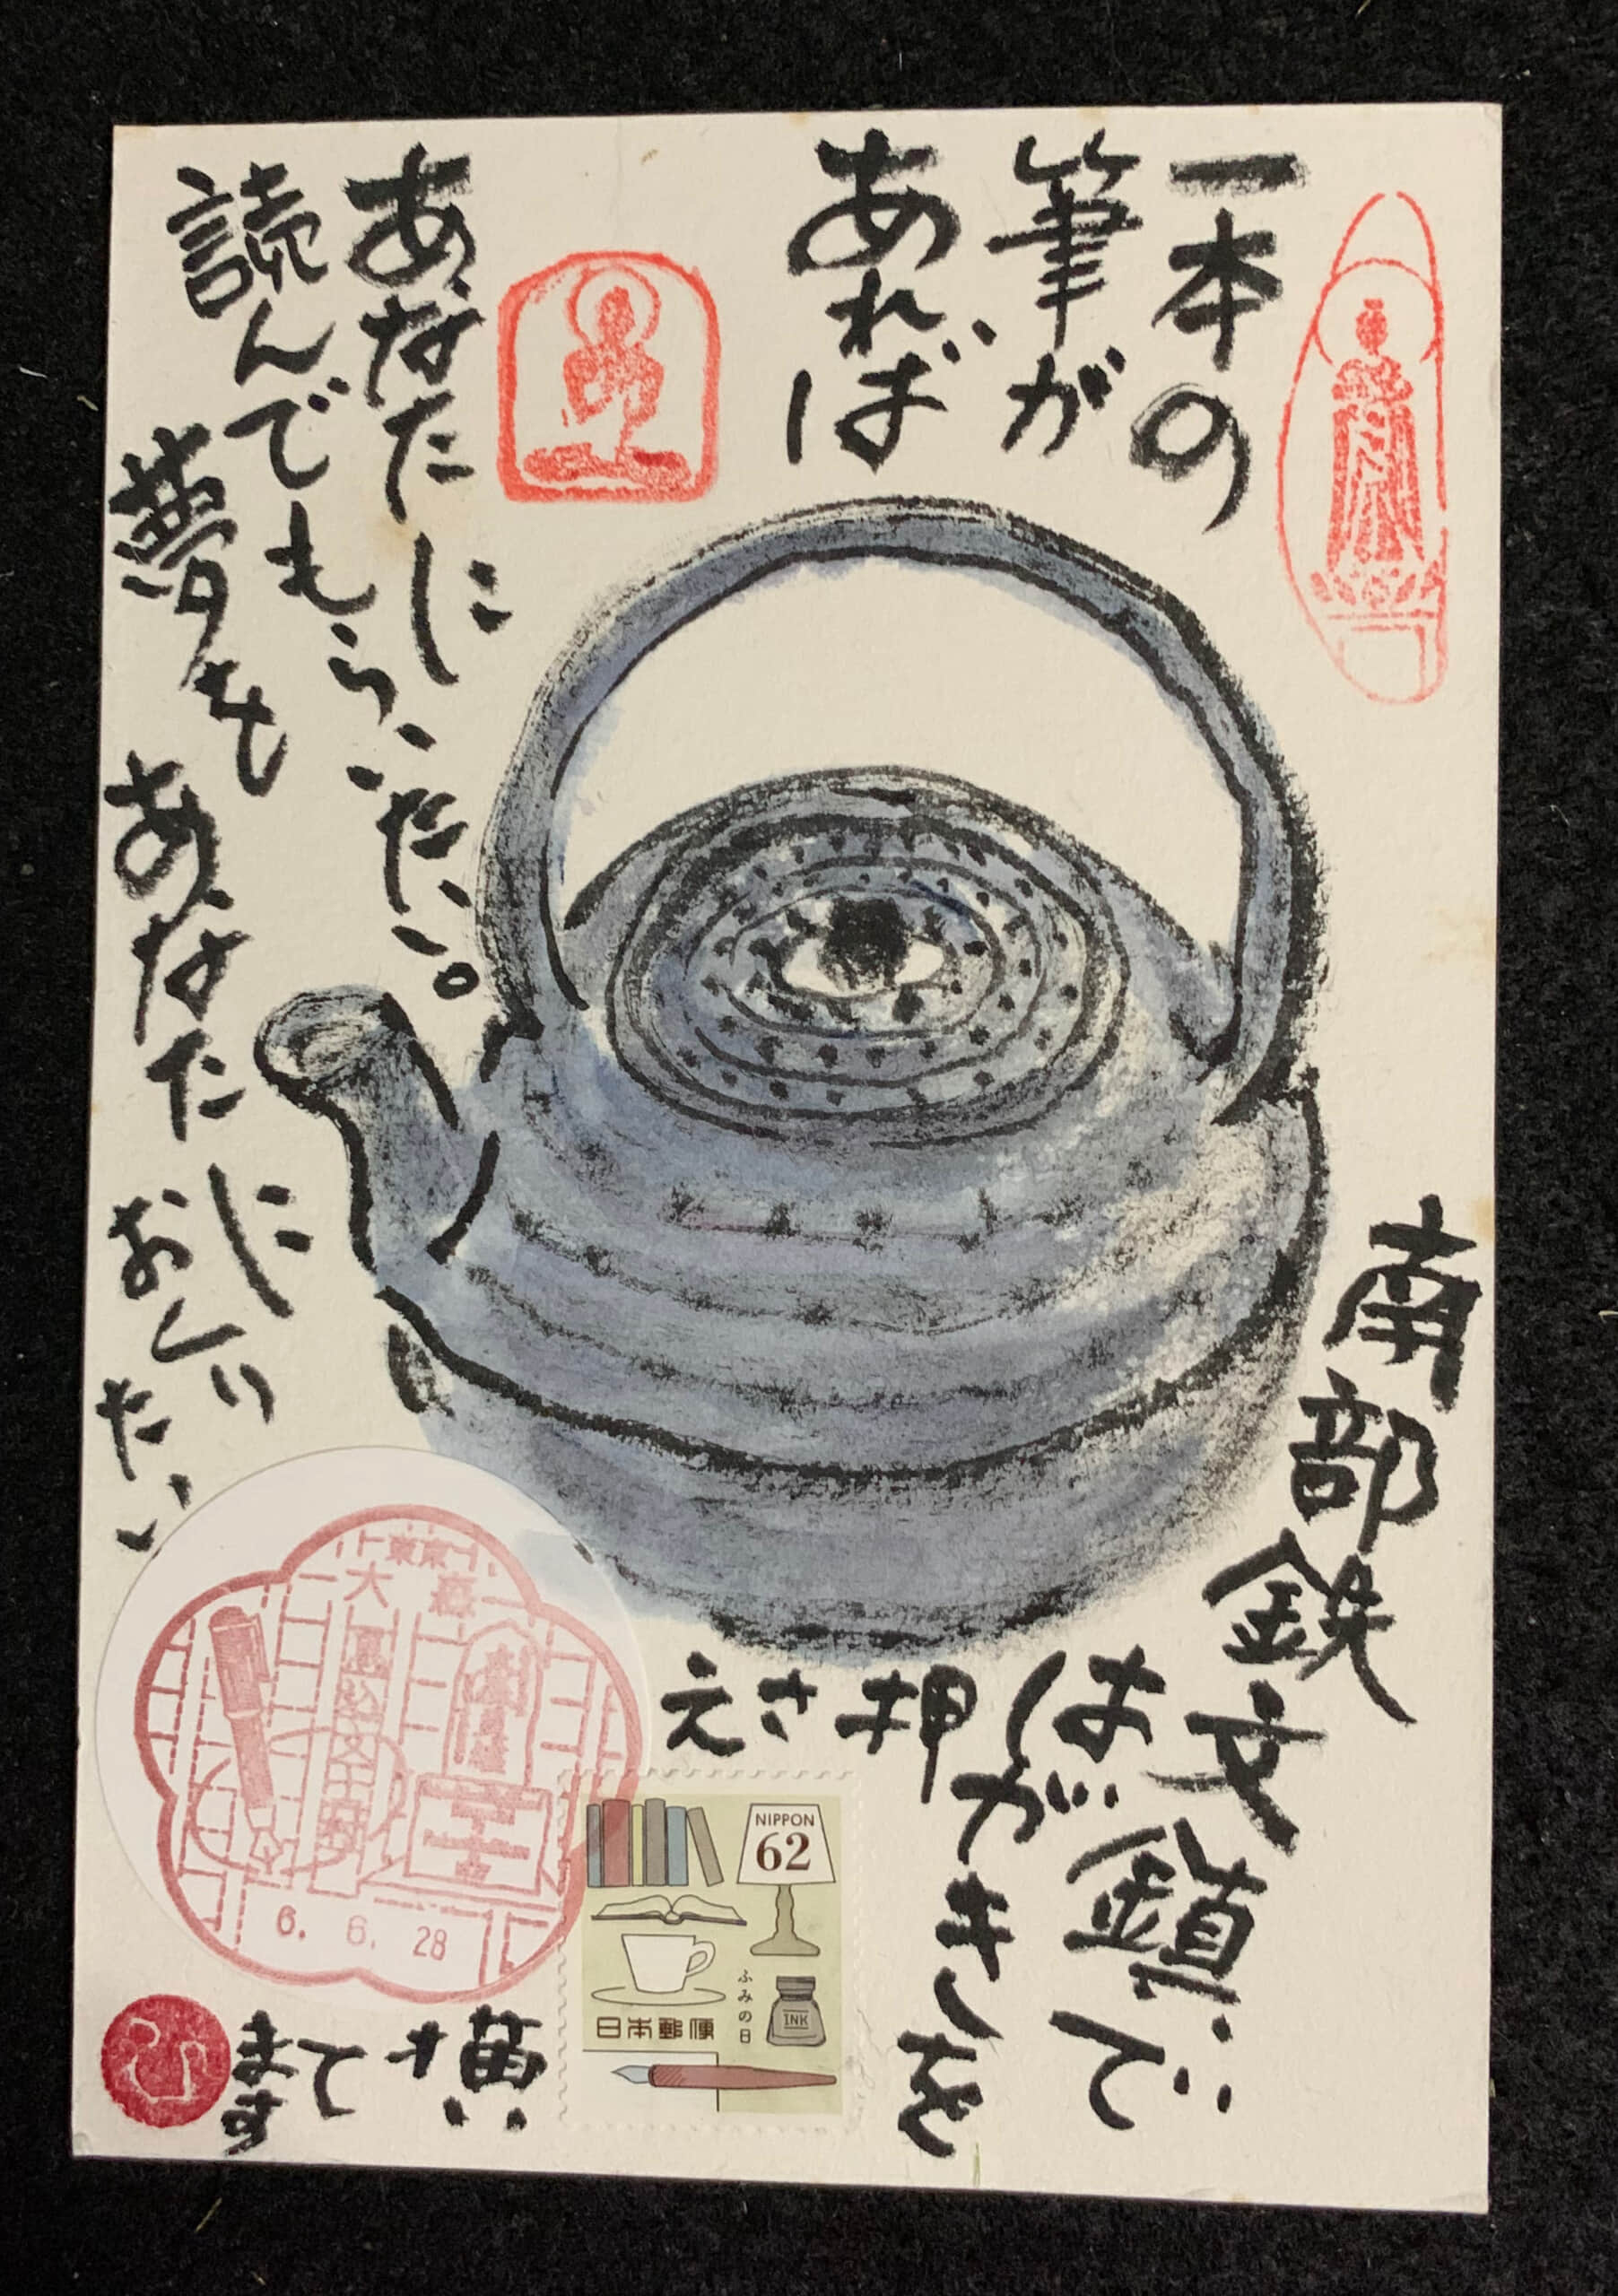 一本の
筆が
あれば
あなたに
読んでもらいたい。
夢もあなたに
おくりたい
南部鉄
文鎮で
はがきを
押さえ
描いて
ます
東京
大森
馬込文士村
6. 6. 28
NIPPON
62
ふみの日
INK
日本郵便
ひ